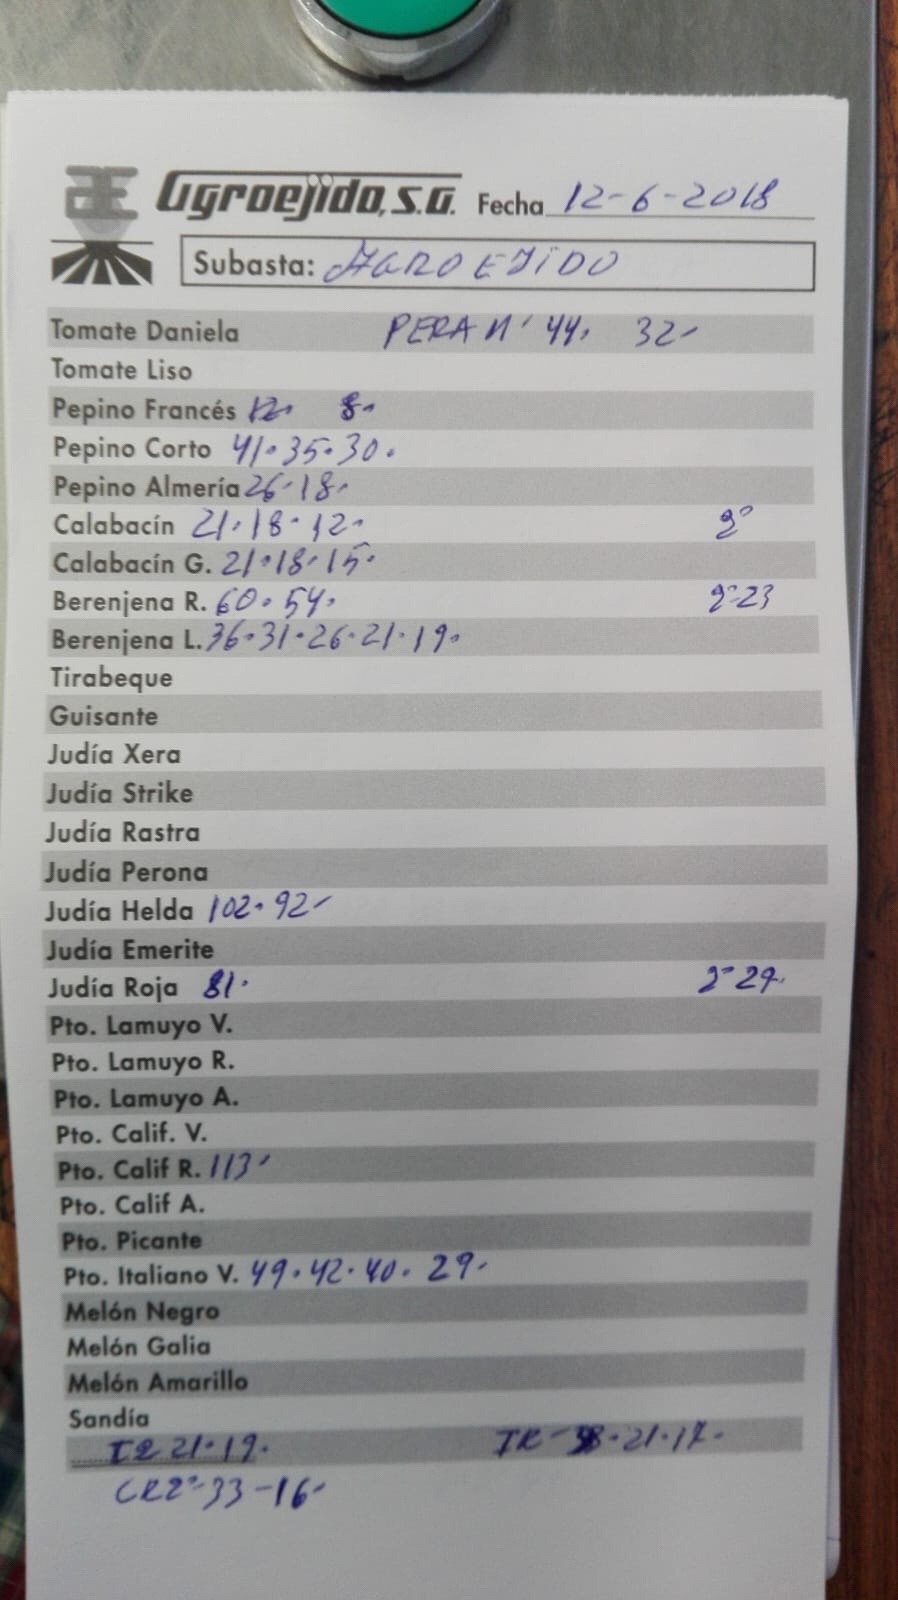 Agroejido, S.A. Fecha 12-6-2018
Subasta: AGROEJIDO
Tomate Daniela PERA N' 44. 32-
Tomate Liso
Pepino Francés 12. 8.
Pepino Corto 41.35.30.
Pepino Almería 26.18.
Calabacín 21.18.12. 2º
Calabacín G. 21.18.15.
Berenjena R. 60.54. 2º23
Berenjena L. 36.31.26.21.19.
Tirabeque
Guisante
Judía Xera
Judía Strike
Judía Rastra
Judía Perona
Judía Helda 102.92-
Judía Emerite
Judía Roja 81. 2º 27.
Pto. Lamuyo V.
Pto. Lamuyo R.
Pto. Lamuyo A.
Pto. Calif. V.
Pto. Calif R. 113'
Pto. Calif A.
Pto. Picante
Pto. Italiano V. 49.42.40. 29.
Melón Negro
Melón Galia
Melón Amarillo
Sandía
21.19. .21.17.
CR2º-33-16-